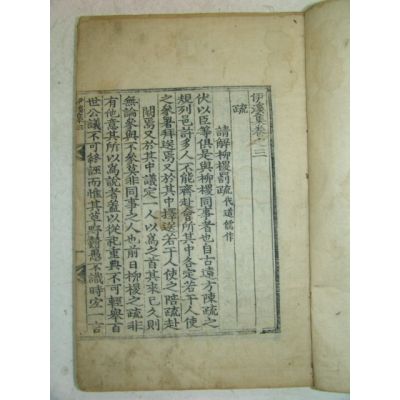 伊溪集卷之三
疏
請解柳㮨罰疏 代道儒作
伏以臣等俱是與柳㮨同事者也自古遠方陳疏之
規列邑許多人不能齊赴會所其中各定若干人使
之參署拜送焉又於其中擇送若干人使之陪疏赴
闕焉又於其中議定一人以爲之首其來已久則
無論參與不參莫非同事之人也前日柳㮨之疏非
有他意其所以爲說者蓋以從祀重典不可輕擧自
世公議不可餘誣而惟其草野戇愚不識時宜一言